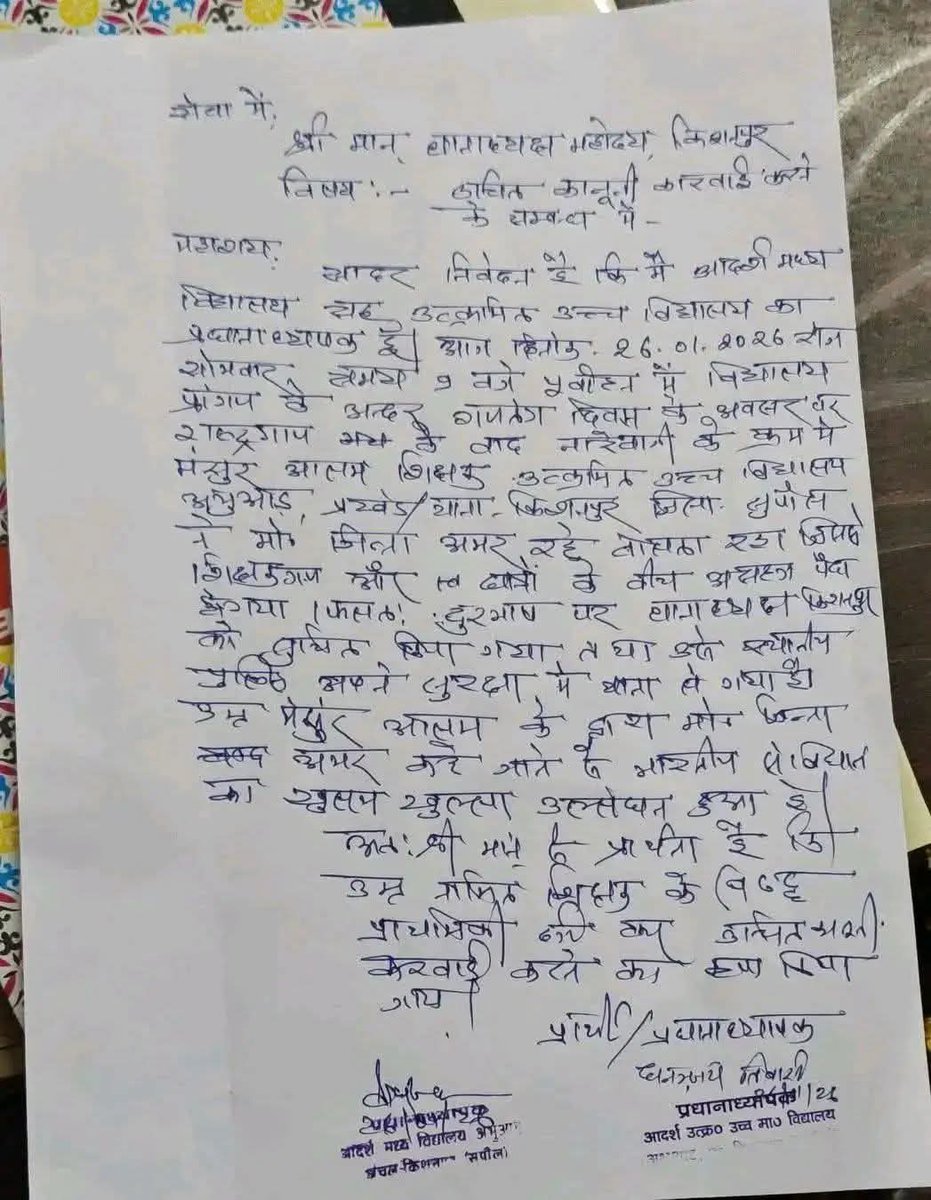 सेवा में,
श्री मान् थानाध्यक्ष महोदय, किशनपुर
विषय :- उचित कानूनी कारवाई करने
के सम्बन्ध में -
महाशय,
सादर निवेदन है कि मैं आदर्श मध्य
विद्यालय सह उत्क्रमित उच्च विद्यालय का
प्रधानाध्यापक हूँ। आज दिनांक. 26.01.2026 रोज
सोमवार समय 9 बजे पूर्वाहन में विद्यालय
प्रांगण के अन्दर गणतंत्र दिवस के अवसर पर
राष्ट्रगान के बाद नारेबाजी के क्रम में
मंसुर आलम शिक्षक उत्क्रमित उच्च विद्यालय
अभुआड़, प्रखंड/थाना - किशनपुर जिला - सुपौल
ने मो० जिन्ना अमर रहे बोलता रहा जिससे
शिक्षकगण और छात्रों के बीच पैदा
हो गया। फलतः दुरभाष पर थानाध्यक्ष किशनपुर
को सुचित किया गया तथा उसे स्थानीय
पुलिस अपने सुरक्षा में थाना ले गया है।
उक्त मंसुर आलम के द्वारा मो० जिन्ना
अमर कहे जाने से भारतीय संविधान
का खुलम खुल्ला उल्लंघन हुआ है।
अतः श्री मान् से प्रार्थना है कि
उक्त नामित शिक्षक के विरुद्ध
प्राथमिकी दर्ज कर उचित कानूनी
करवाई करने का कृपा किया
जाय।
प्रार्थी/प्रधानाध्यापक
धनन्जय तिवारी
प्रधानाध्यापक
आदर्श उत्क्र० उच्च मा० विद्यालय
आदर्श मध्य विद्यालय अभुआड़
अंचल-किशनपुर (सुपौल)